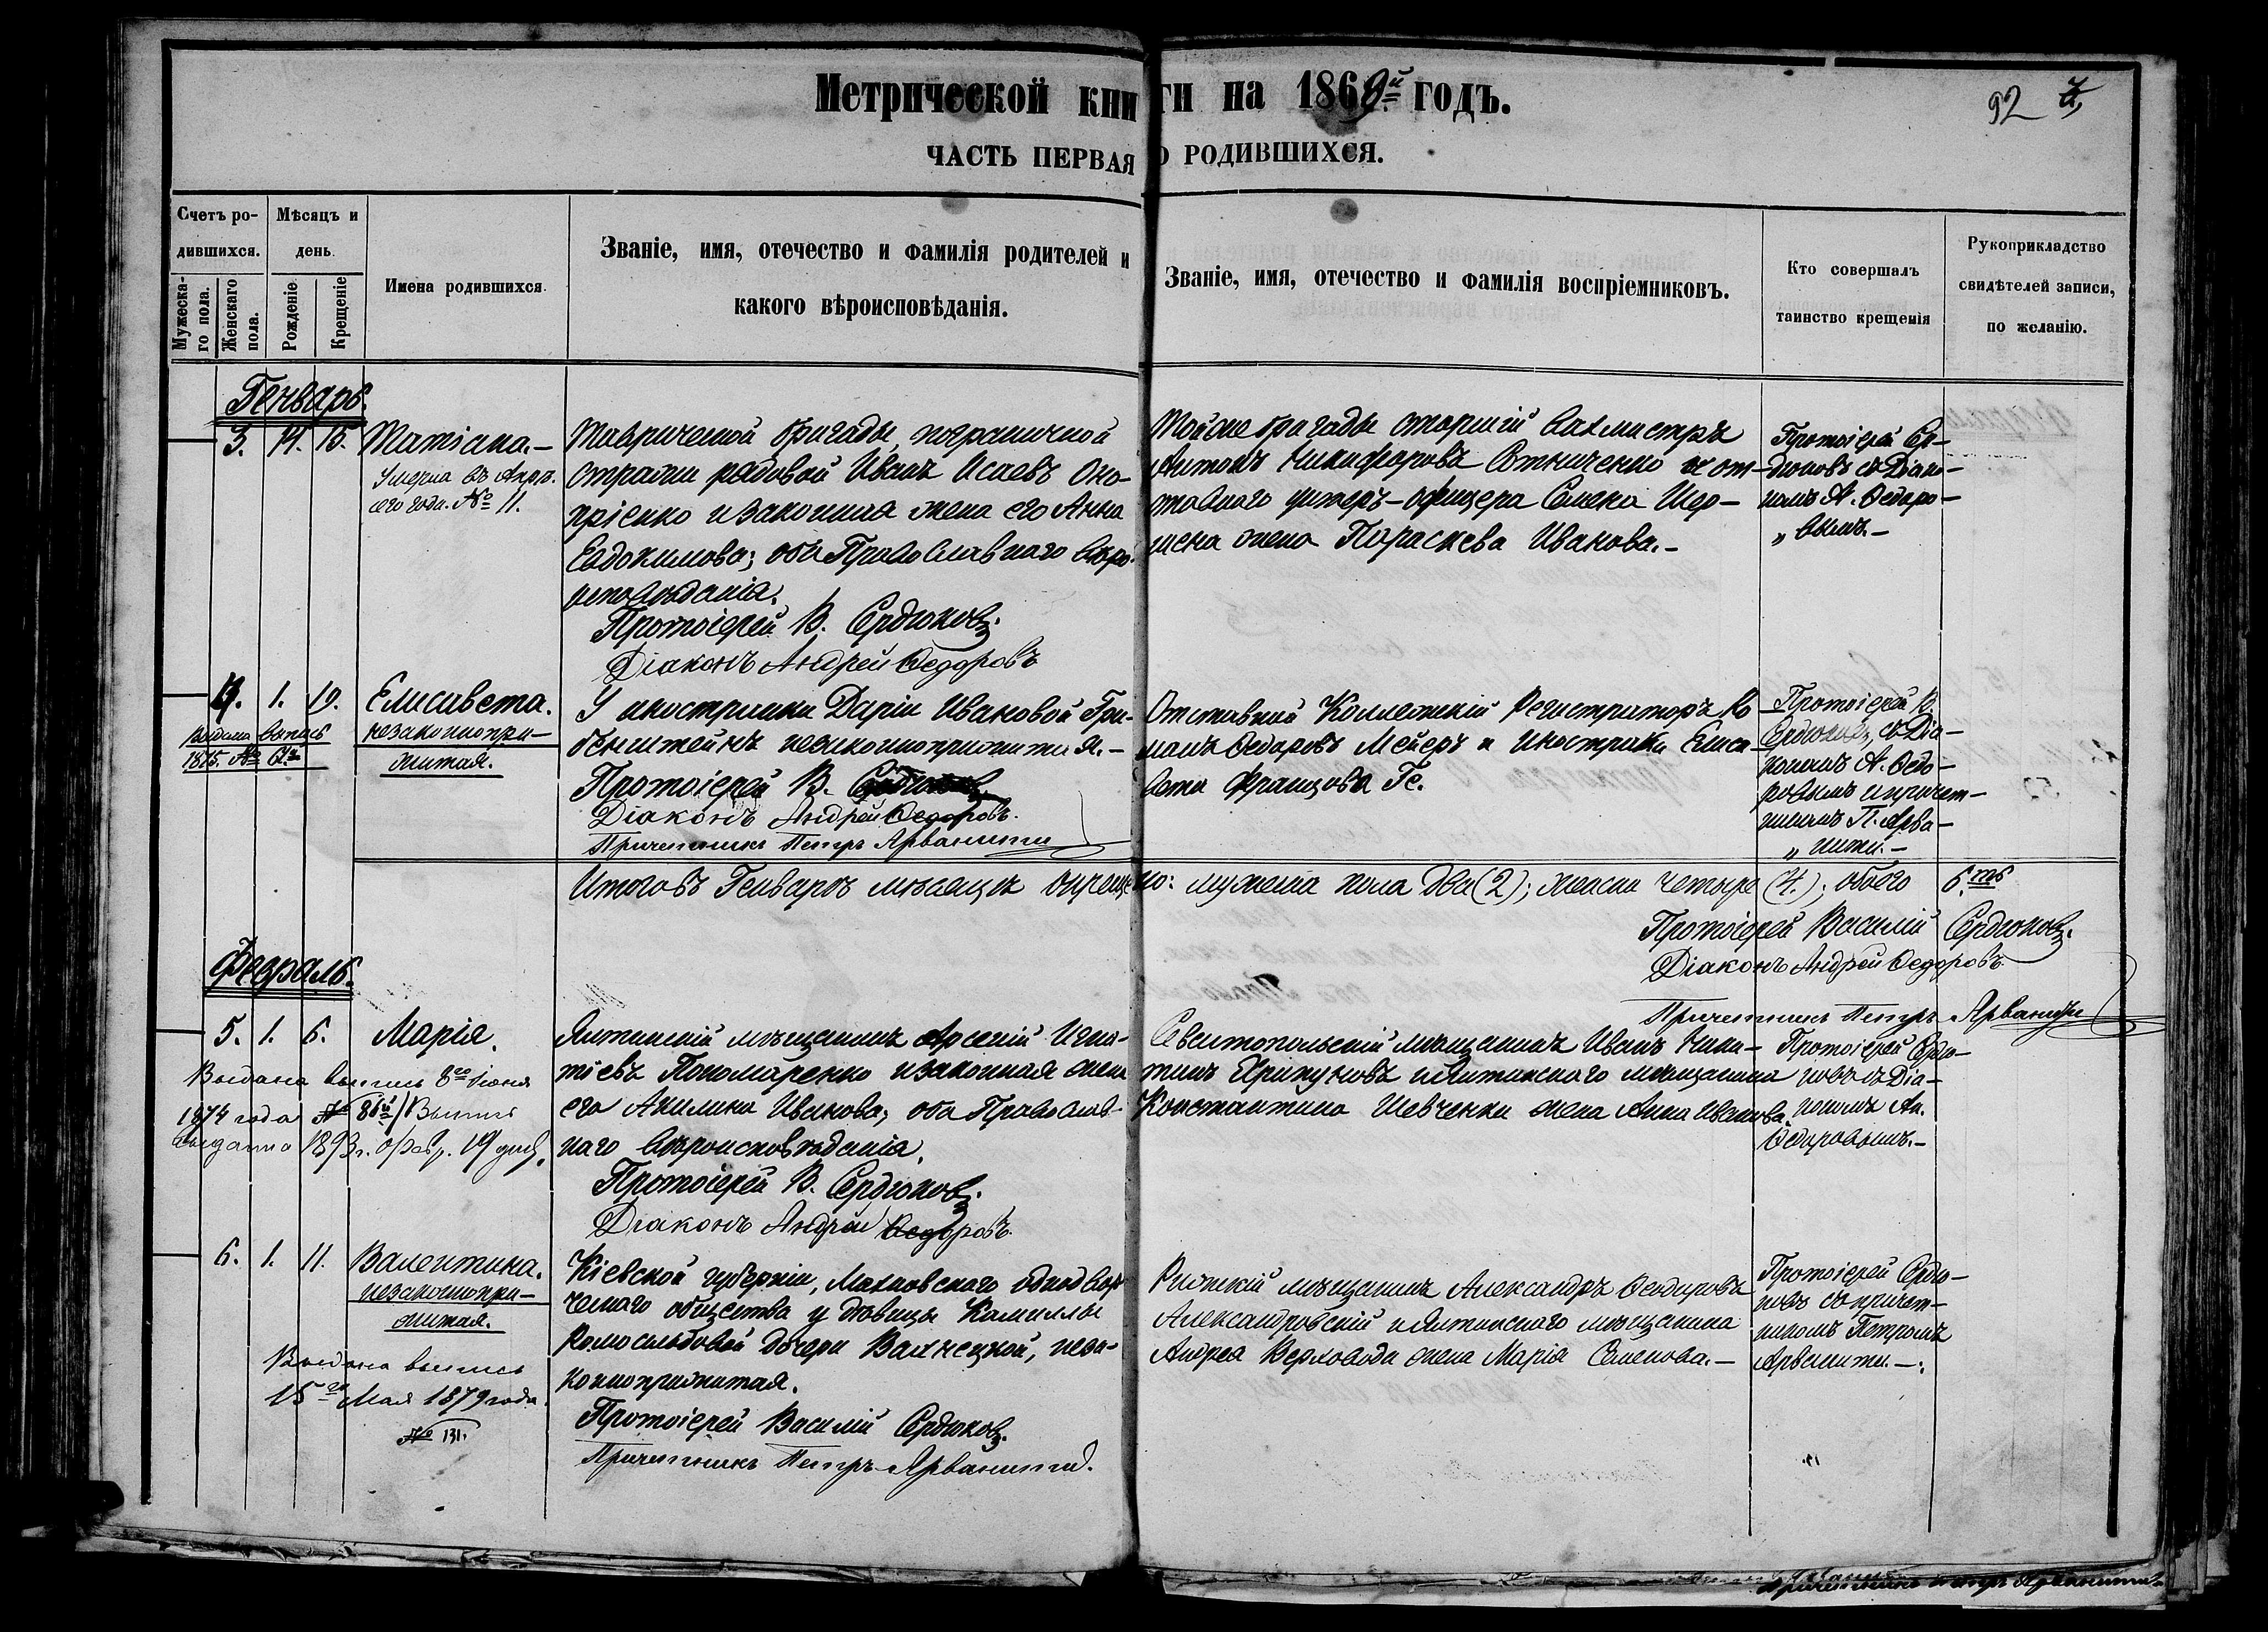 Метрической книги на 1869й годъ.
92
ЧАСТЬ ПЕРВАЯ О РОДИВШИХСЯ.
Счетъ ро-
дившихся.
Мужеска-
го пола.
Женскаго
пола.
Мѣсяцъ и
день.
Рожденіе.
Крещеніе
Имена родившихся.
Званіе, имя, отечество и фамилія родителей и
какого вѣроисповѣданія.
Званіе, имя, отечество и фамилія воспріемниковъ.
Кто совершалъ
таинство крещенія
Рукоприкладство
свидѣтелей записи,
по желанію.
Генварь.
3. 14. 15. Татіана.-
Умерла въ Апр.
сего года. № 11.
Таврической бригады, пограничной
стражи рядовой Иванъ Исаевъ Оно-
прiенко и законная жена его Анна
Евдокимова; оба Православнаго вѣро-
исповѣданія.
Протоіерей В. Сердюковъ.
Діаконъ Андрей Ѳедоровъ
Той же бригады старшій вахмистръ
Антонъ Никифоровъ Сотниченко и от-
ставнаго унтеръ-офицера Семена Шер-
шена жена Параскева Иванова.-
Протоіерей Сер-
дюковъ съ Діако-
номъ А. Ѳедоро-
„ вымъ.-
4. 1. 19. Елисавета.
незаконнопри-
житая.
Выдана выпись
1875. №
У иностранки Даріи Ивановой Гри-
бенштейнъ незаконноприжитая.-
Протоіерей В. Сердюковъ
Діаконъ Андрей Ѳедоровъ.
Причетникъ Петръ Арванити
Отставной Коллежскій Регистраторъ Ро
манъ Ѳедоровъ Мейеръ и иностранка Елиса-
вета Францова Ге.
Протоіерей В.
Сердюковъ, съ Діа-
кономъ А. Ѳедо-
ровымъ и причет-
никомъ П. Арва-
„ нити.-
Итого въ Генварѣ мѣсяцѣ окрещено: мужеска пола два (2); женска четыре (4.); обоего 6.ть
Протоіерей Василій Сердюковъ.
Діаконъ Андрей Ѳедоровъ.
Причетникъ Петръ Арванити
Февраль.
5. 1. 6. Марія.
Выдана выпись 8го Іюня
1874 года № 86й/Выпись
выдана 1893 г. февр. 19 дня.
Ялтинскій мѣщанинъ Арсеній Игна-
тіевъ Пономаренко и законная жена
его Акилина Иванова; оба Православ-
наго вѣроисповѣданія.
Протоіерей В. Сердюковъ.
Діаконъ Андрей Ѳедоровъ.
Севастопольскій мѣщанинъ Иванъ Ники-
тинъ и Ялтинскаго мѣщанина
Константина Шевченки жена Анна Иванова.
Протоіерей Сердю-
ковъ съ Діа-
кономъ Ан.
Ѳедоровымъ.-
6. 1. 11. Валентина.
незаконнопри-
житая.
Выдана выпись
15го Мая 1879 года.
№ 131.
Кіевской губерніи, Махновскаго однодвор-
ческаго общества у дѣвицы Камиллы
Ромосильдовой дочери Валнецкой, неза-
конноприжитая.
Протоіерей Василій Сердюковъ.
Причетникъ Петръ Арванити.
Рижскій мѣщанинъ Александръ Ѳеодоровъ
Александровскій и Ялтинскаго мѣщанина
Андрея Верховода жена Марія Семенова.-
Протоіерей Сердю-
ковъ съ причет-
никомъ Петромъ
Арванити.-
Причетникъ Петръ Арванити